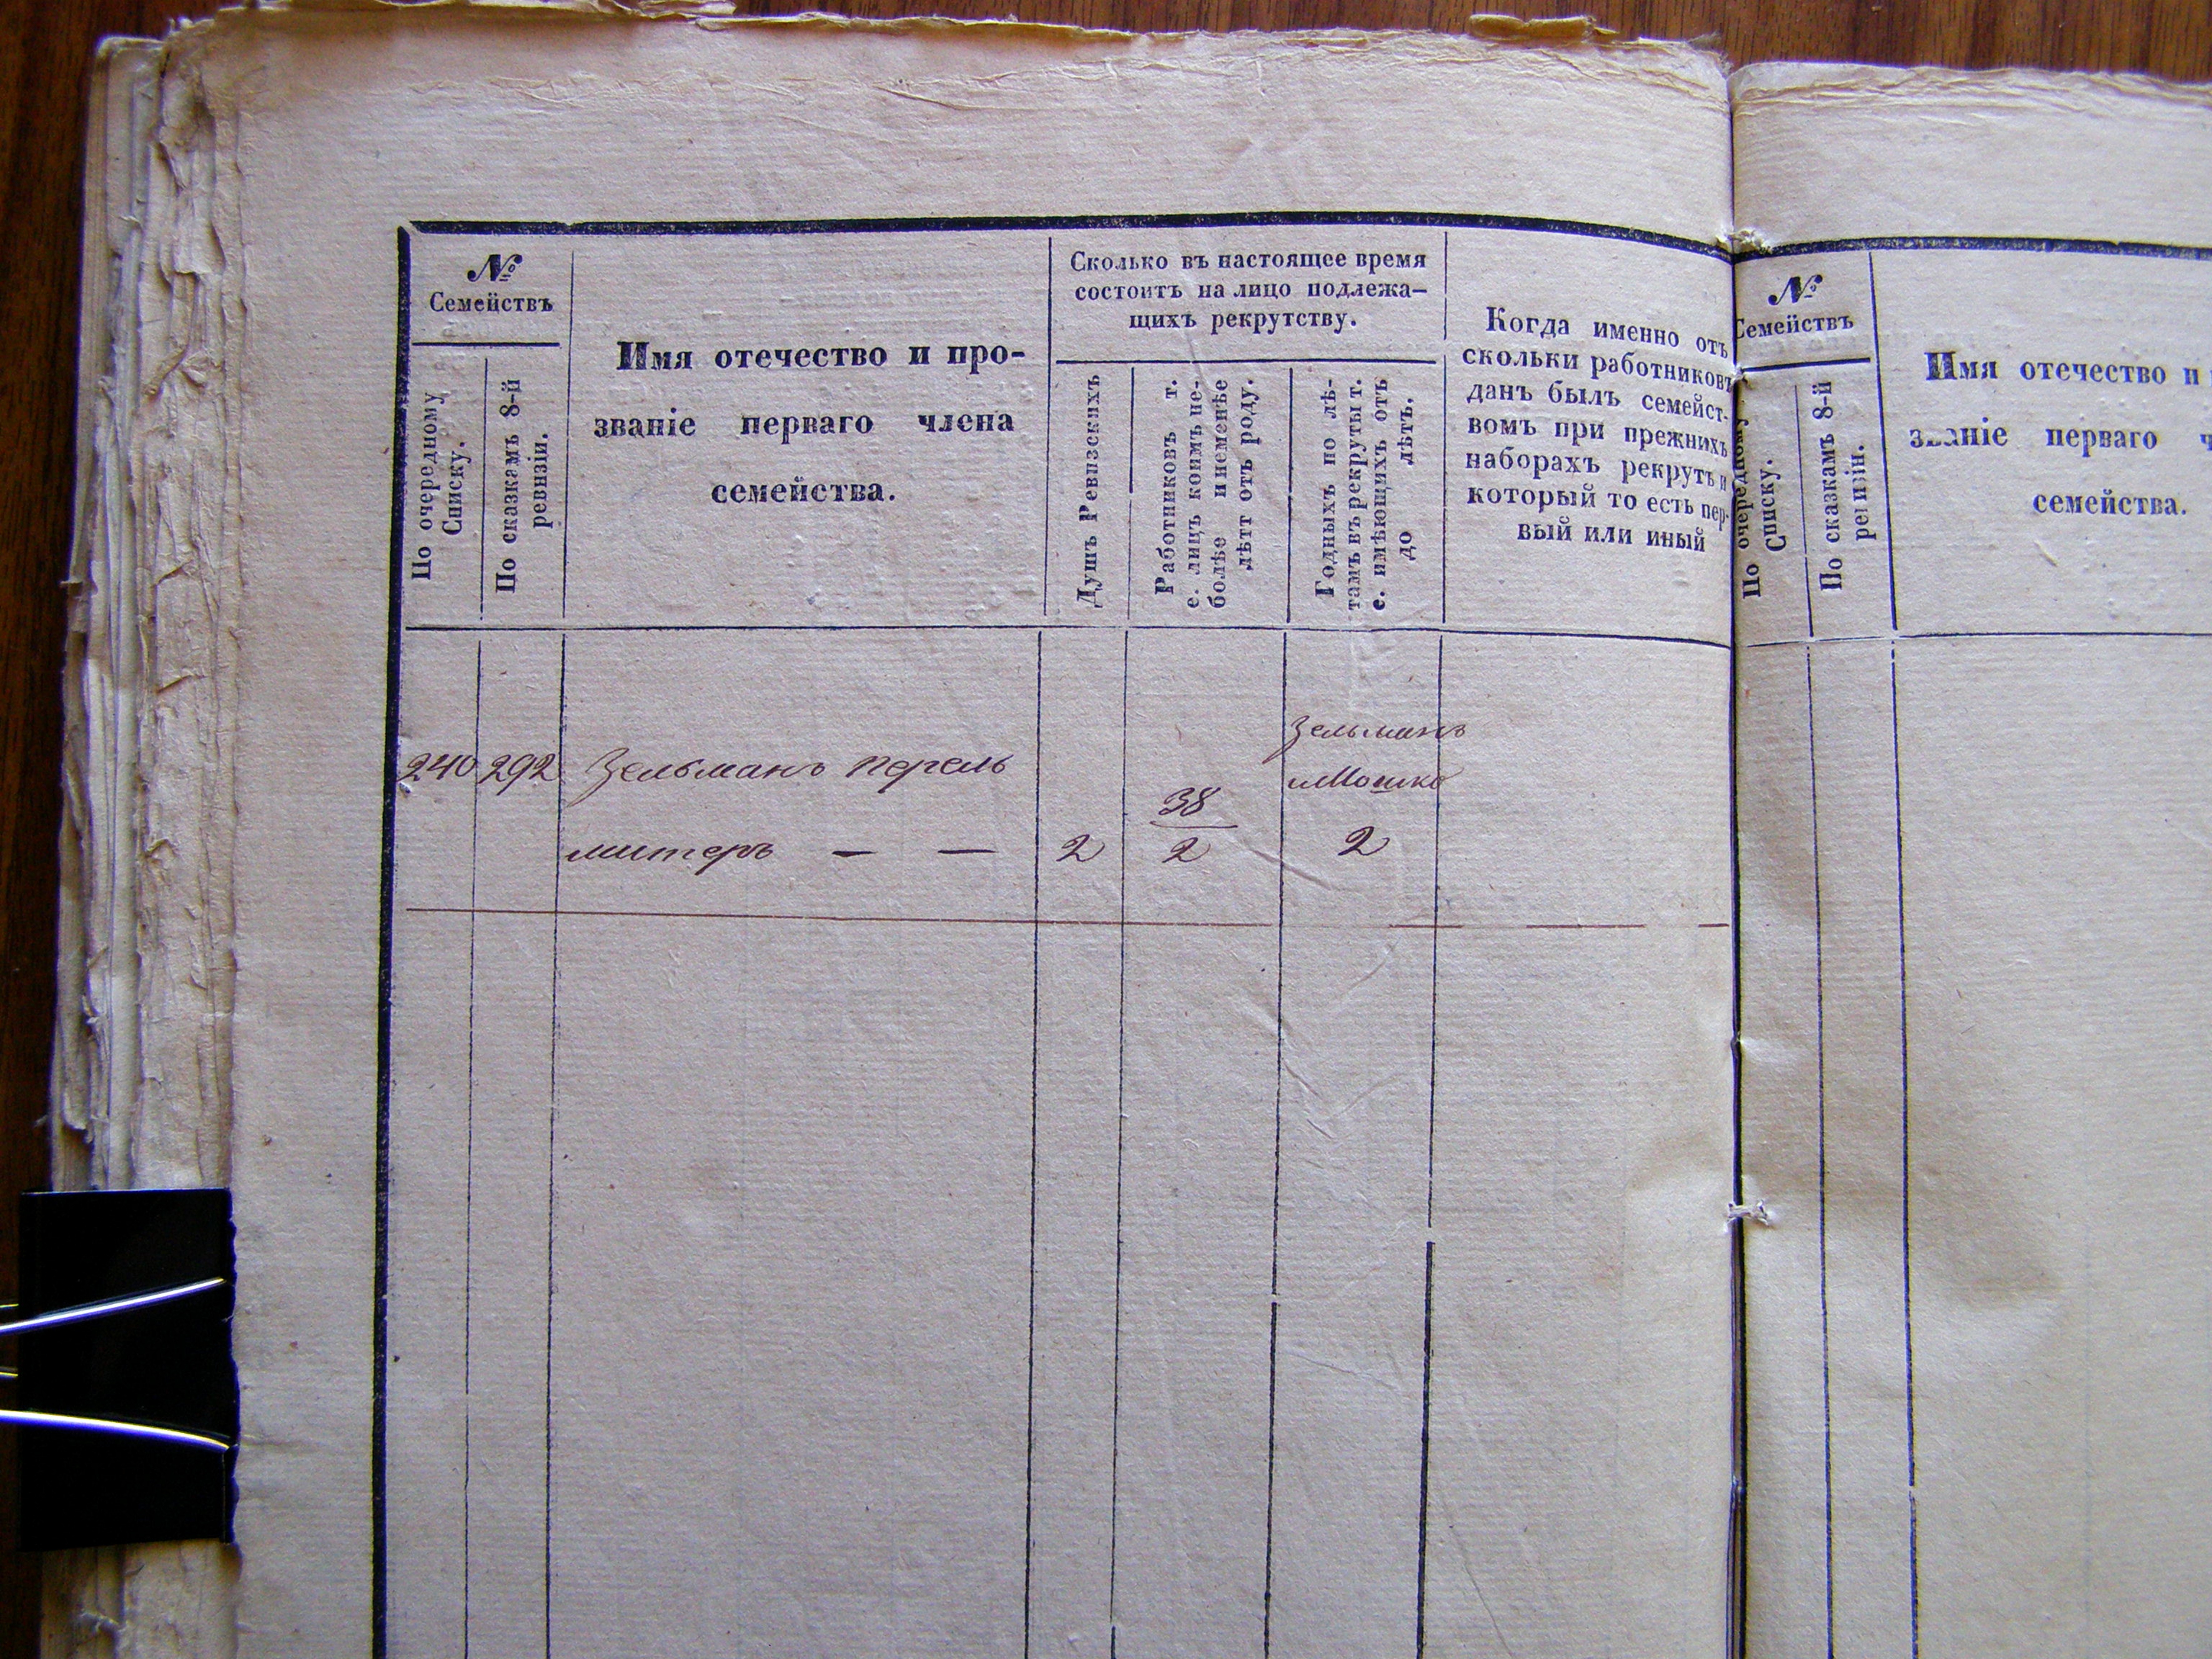 №
Семействъ
По очередному
Списку.
По сказкамъ 8-й
ревизіи.
Имя отечество и про-
званіе перваго члена
семейства.
Сколько въ настоящее время
состоитъ на лицо подлежа-
щихъ рекрутству.
Душъ Ревизскихъ
Работниковъ т.
е. лицъ коимъ не-
болѣе и неменѣе
лѣтт отъ роду.
Годныхъ по лѣ-
тамъ въ рекруты т.
е. имѣющихъ отъ
до лѣтъ.
Когда именно отъ
скольки работниковъ
данъ былъ семейст-
вомъ при прежнихъ
наборахъ рекрутъ и
который то есть пер-
вый или иный
240 292 Зельманъ Перель
митеръ — — 2 38
2
Зельманъ
и Мошко
2
№
Семействъ
По очередному
Списку.
По сказкамъ 8-й
ревизіи.
Имя отечество и
званіе перваго ч
семейства.